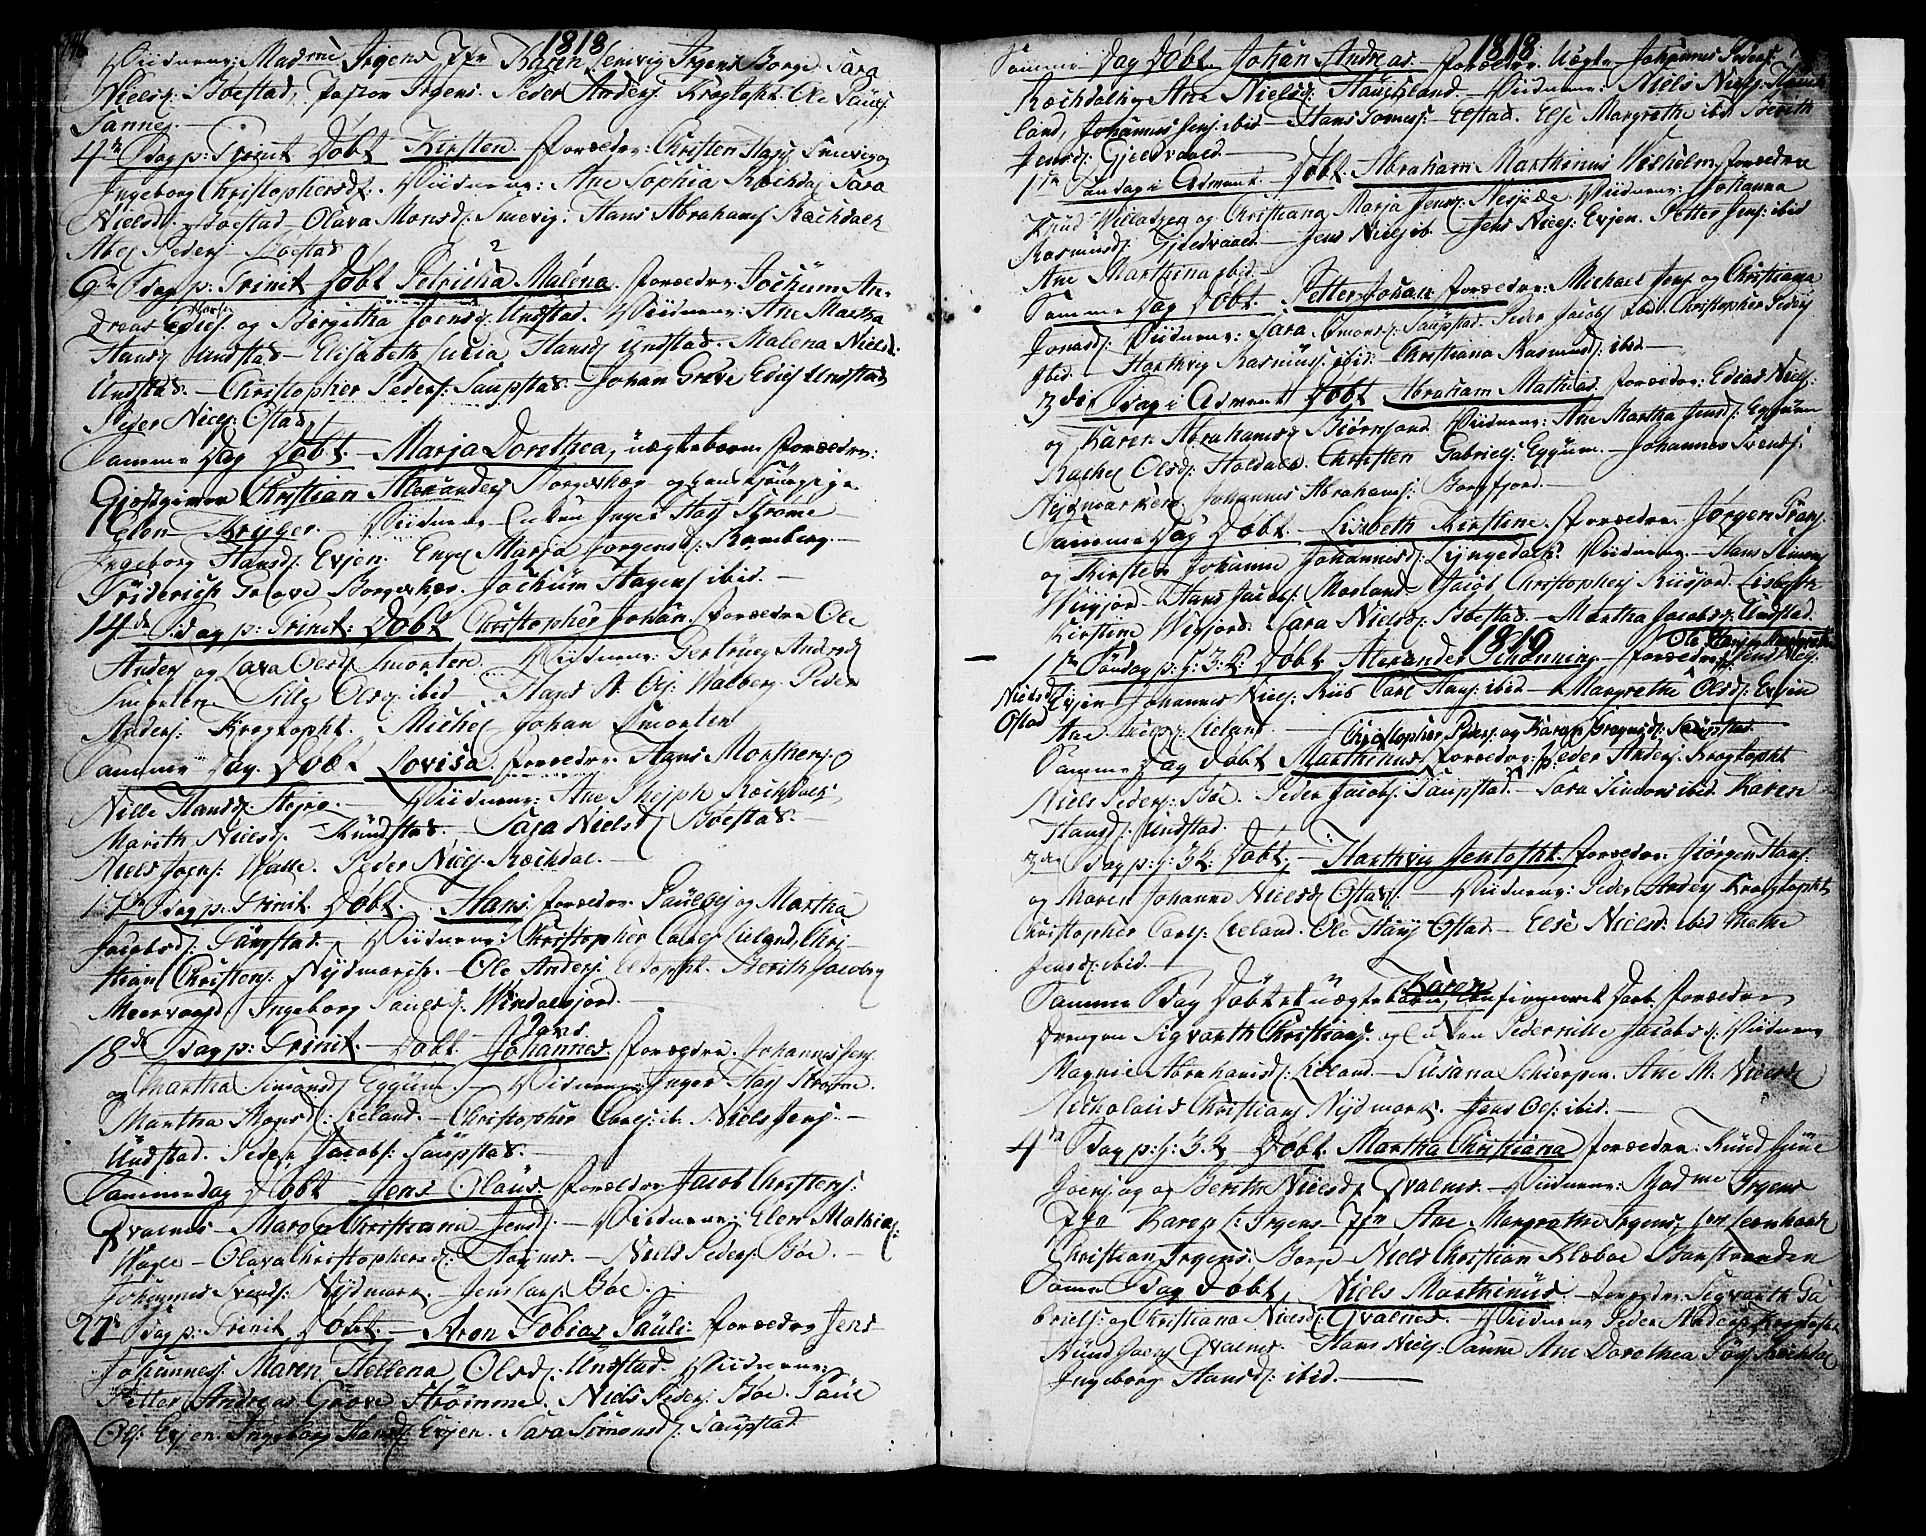 1818
Viidnerne: Madme Irgens Jfr Karen Leenvig Irgens Borge Sara
Nielsd: Boestad, Pastor Irgens. Peder Anders: Kragtopht. Ole Pauls:
Sannes.
4de Sdag p: Trinit Døbt Kirsten. forældre: Christen Hans: Smevig og
Ingeborg Christophersd:. Viidnerne: Ane Sophia Rechdal Sara
Nielsd: Boestad Olava Monsd: Smevig. Hans Abrahams: Rechdal
Peders: Boestad
9de Sdag p: Trinit Døbt Petricha Maléna. forældre Jochum An-
dreas Elies: og Birgitha Joensd: Undstad. Viidnerne: Ane Martha
Hansd: Undstad - Elisabeth Lucia Hansd: Undstad. Malena Nielsd:
Undstad. - Christopher Peders: Saupstad - Johan Grove Elies: Undstad
Peder Niels: Ostad
Samme Dag Døbt. Marja Dorethea, uægtebarn forældre:
Giestgiver Christian Alexanders: Borgevær og
Elen Kryger. Viidnerne Enken Inger Hans: Strøme
Ingeborg Hansd: Evjen. Engel Marja Jørgensd: Ramberg.
Friderich Grove Borgevær. Jochum Hagens: ibid.
14de Sdag p: Trinit: Døbt Christopher Johan. forældre Ole
Anders: og Lava Olsd: Smorten. Viidnerne: Gertrue Andersd:
Smorten. Sille Olsd: ibid Hans A. Ols: Walberg Peder
Anders: Kragtopht. Michel Johan Smorten
Samme Dag Døbt Lovisa. forældre. Hans Morthens: og
Nille Hansd: Steje. Viidnerne: Ane Rechdal
Marith Nielsd: Kundstad - Sara Nielsd: Boestad.
Niels Joens: Walle. Peder Niels: Rechdal.
17de Sdag p: Trinit Døbt. Hans forældre Paul Els: og Martha
Jacobsd: Saupstad. Viidnerne: Christopher Carls: Lieland, Chri-
stian Christens: Nydmarch. Ole Anders: Eltopht. Berith Jacobsd:
Meervaag Ingeborg Paulsd: Windalsfjord.
18de Sdag p: Trinit. Døbt Johannes. forældre. Johannes Jens:
og Martha Simonsd: Eggum. Viidnerne Inger Hans: Strøme.
Martha Mogensd: Lieland. Christopher Carls: ib. Niels Jens:
Undstad. Peder Jacobs: Saupstad.
Sammendag Døbt Jens Olaus. forældre Jacob Christens:
Qvalnes - Maren Christiana Jensd: Viidnerne: Elen Mathias:
Wagle - Olava Christophersd: Hagnes. Niels Peders: Bøe.
Johannes Svends: Nydmark. Jens Lars: Bøe.
27de Sdag p: Trinit Døbt Aron Tobias Pauli: forældre Jens
Johannes: Maren Hellena Olsd: Undstad. Viidnerne
Petter Andreas Grove Strømme. Niels Peders: Bøe. Paul
Ols: Evjen. Ingeborg Hansd: Evjen. Sara Simonsd: Saupstad.
1818
Samme Dag Døbt Johan Andreas. forældre Uægte Johannes Peders:
Rechdal og Ane Nielsd: Haugland. Viidnerne: Niels Niels: Haug-
land, Johannes Jens: ibid - Hans Tomes: Elstad. Else Margrethe ibid Berith
Jensd: Gjeldvaaed.
1ste Søndag i Advent Døbt. Abraham Marthinus Wilhelm. forældre
Knud Wilatzen og Christiana Marja Jensd: Nesje. Viidnerne: Johanna
Rasmusd: Gjeldvaaed. Jens Niels: ib Jens Niels: Evjen. Petter Jens: ibid
Ane Marthina ibid.
Samme Dag Døbt. Petter Johan forældre: Michael Jens: og Christiana
Jonasd: Viidnerne: Sara Simonsd: Saupstad. Peder Jacobs: Ibid. Christopher Peders:
Ibid. Harthvig Rasmuss: ibid: Christiana Rasmusd: ibid.
3die Sdag i Advent Døbt Abraham Mathias. forældre: Elias Niels:
og Karen Abrahamsd: Biørnsand. Viidnerne: Ane Martha Jensd: Eggum
Rachel Olsd: Holdal. Christen Gabriels: Eggum. Johannes Svends:
Nydmarken, Johannes Abrahams: Borgfjord.
Samme Dag Døbt. Lisbeth Kirstine. forældre. Jørgen Frans:
og Kirsten Johanne Johannesd: Lyngedal. Viidnerne. Hans Simons:
Wigfjor - Hans Jacobs: Morland Jacob Christophers: Riisfjor. Lisbeth
Kirstine Wigfjord. Sara Nielsd: Boestad - Martha Jacobsd: Undstad.
1819
1ste Søndag p: H: 3: K: Døbt Alexander Schønning. forældre Ole Hans: Margrethe
Nielsd: Ostad
Jens Niels: Evjen Johannes Niels: Riis Carl Hans: ibid - Margrethe Olsd: Evjen
Ane Nielsd: Lieland
Christopher Peders: og Karen Grognsd: Saupstad
Samme Dag Døbt Marthinus forældre: Peder Anders: Kragtopht
Niels Peders: Bøe. Peder Jacobs: Saupstad. - Sara Simons: ibid Karen
Hansd: Undstad.
3die Sdag p: H: 3K: Døbt, Harthvig Jentopht. forældre: Jørgen Hans:
og Maren Johanne Nielsd: Ostad. Viidnerne: Peder Anders: Kragtopht
Christopher Carls: Lieland. Ole Hans: Ostad - Else Nielsd: ibid Mathe
Jensd: ibid.
Samme Sdag Døbt et uægtebarn, Karen Confirmeret Daab forældre
Drengen Sigvarth Christians: og Enken Pedernille Jacobsd: Viidnerne
Magnil Abrahamsd: Lieland - Susana Schierpen. Ane M. Nielsd:
Nicholaus Christians: Nydmark. Jens Ols: ibid.
4de Sdag p: H: 3K - Døbt. Martha Christiana forældre. Knud Juul
Joens: og Berith Nielsd: Qvalnes. Viidnerne: Madme Irgens
Jfr Karen L: Irgens Jfr Ane Margrethe Irgens, Hr Leonhard
Christian Irgens. Borge Niels Christian Klæboe Barstranden
Samme Sdag Døbt, Niels Marthinus. forældre Sigvarth Ga-
briels: og Christiana Nielsd: Qvalnes. Viidnerne Peder Anders: Kragtopht
Knud Joens: Qvalnes. Hans Niels: Sanne Ane Dorothea Rechdal
Ingeborg Hansd: ibid.